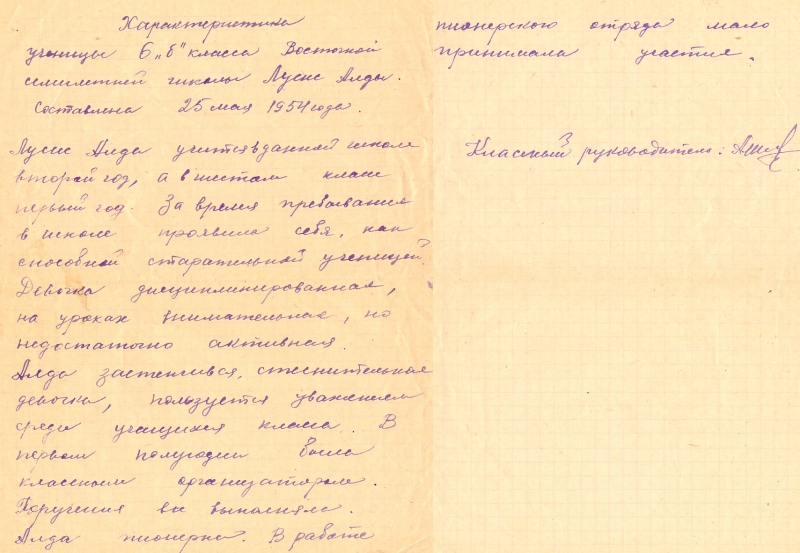 Характеристика
ученицы 6 „б" класса Восточной
семилетней школы Лусис Алды.
Составлена 25 мая 1954 года.
Лусис Алда учится в данной школе
второй год, а в шестом классе
первый год. За время пребывания
в школе проявила себя, как
способной старательной ученицей.
Девочка дисциплинированная,
на уроках внимательная, но
недостаточно активная.
Алда застенчивая, стеснительная
девочка, пользуется уважением
среди учащихся класса. В
первом полугодии была
классным организатором.
Поручения все выполняла.
Алда пионерка. В работе
пионерского отряда мало
принимала участие.
Классный руководитель: